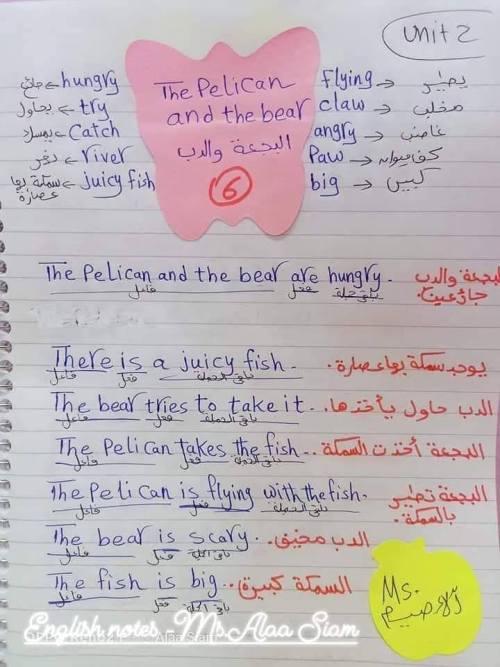 Unit 2
The Pelican
and the bear
البجعة والدب
6
hungry → جائع
try → يحاول
catch → يمسك
river → نهر
juicy fish → سمكة بها عصارة
Flying → يطير
claw → مخلب
angry → غاضب
Paw → كف حيوان
big → كبير
The Pelican and the bear are hungry. البجعة والدب جائعين.
فاعل فعل باقي جملة
There is a juicy fish. يوجد سمكة بها عصارة.
فاعل فعل باقي الجملة
The bear tries to take it. الدب حاول يأخذها.
فاعل فعل باقي الجملة
The Pelican takes the fish. البجعة أخذت السمكة.
فاعل فعل باقي الجملة
The Pelican is flying with the fish. البجعة تطير بالسمكة.
فاعل فعل باقي الجملة
The bear is scary. الدب مخيف.
فاعل فعل باقي الجملة
The fish is big. السمكة كبيرة.
فاعل فعل باقي الجملة
Ms.
آلاء صيام
English notes, Ms.Alaa Siam